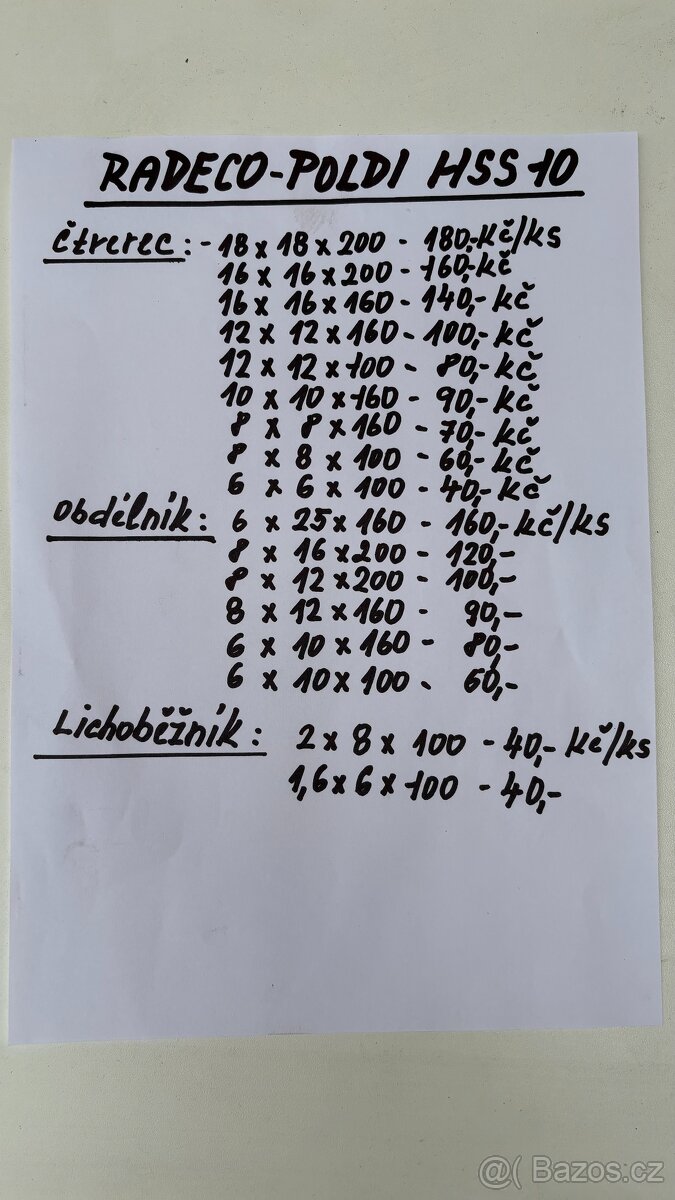 RADECO-POLDI HSS10
Čtverec: - 18 x 18 x 200 - 180,-Kč/ks
16 x 16 x 200 - 160,-Kč
16 x 16 x 160 - 140,- Kč
12 x 12 x 160 - 100,- Kč
12 x 12 x 100 - 80,- Kč
10 x 10 x 160 - 90,- Kč
8 x 8 x 160 - 70,- Kč
8 x 8 x 100 - 60,- Kč
6 x 6 x 100 - 40,- Kč
Obdélník: 6 x 25 x 160 - 160,- Kč/ks
8 x 16 x 200 - 120,-
8 x 12 x 200 - 100,-
8 x 12 x 160 - 90,-
6 x 10 x 160 - 80,-
6 x 10 x 100 - 60,-
Lichoběžník: 2 x 8 x 100 - 40,- Kč/ks
1,6 x 6 x 100 - 40,-
@( Bazos.cz